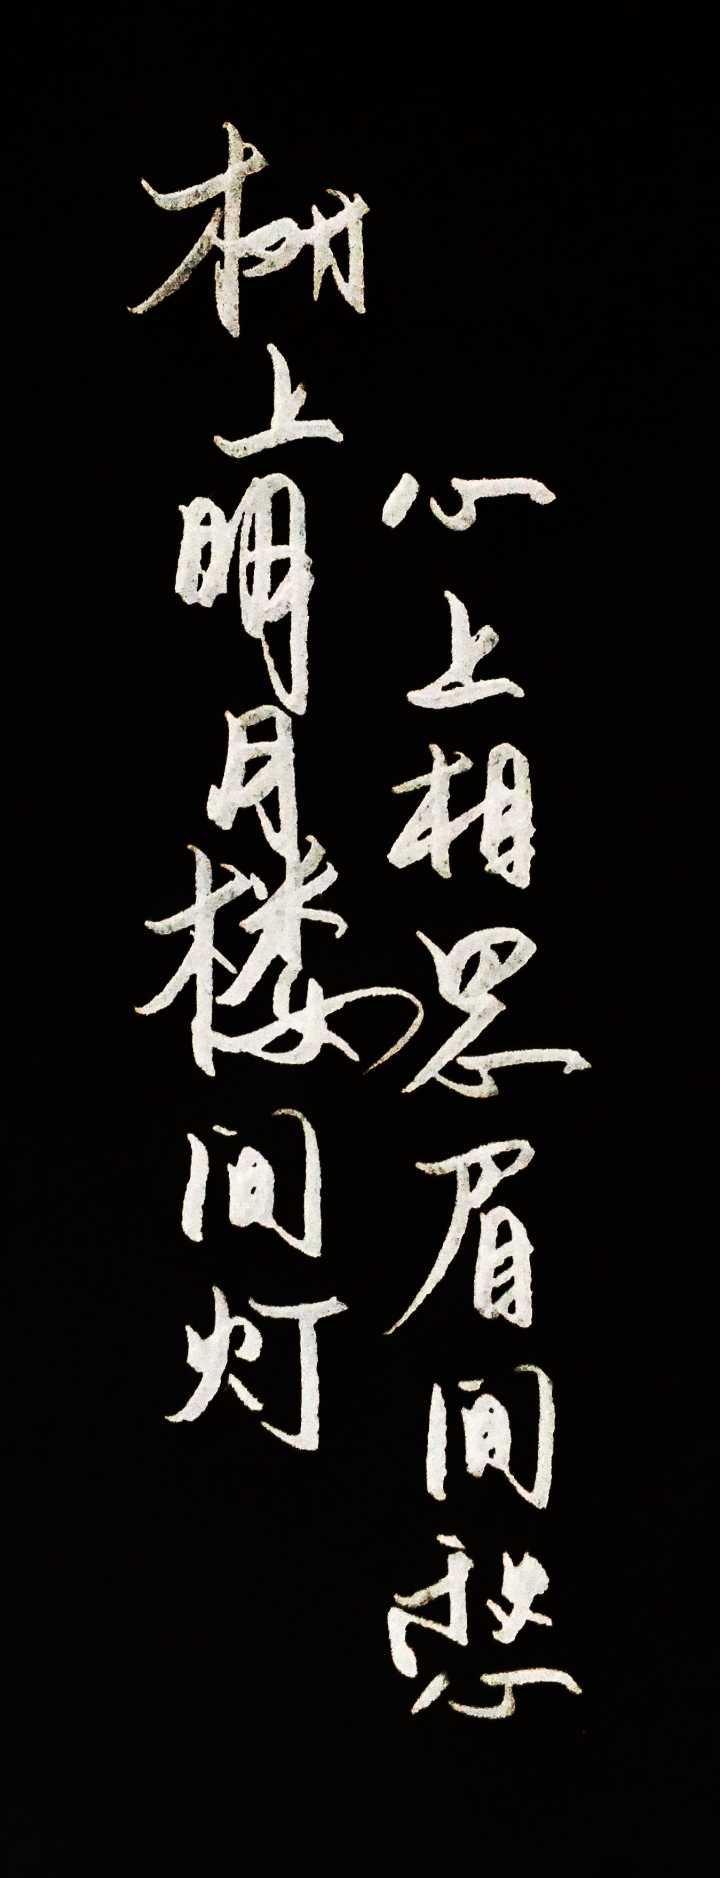 树上明月楼间灯
心上相思眉间愁